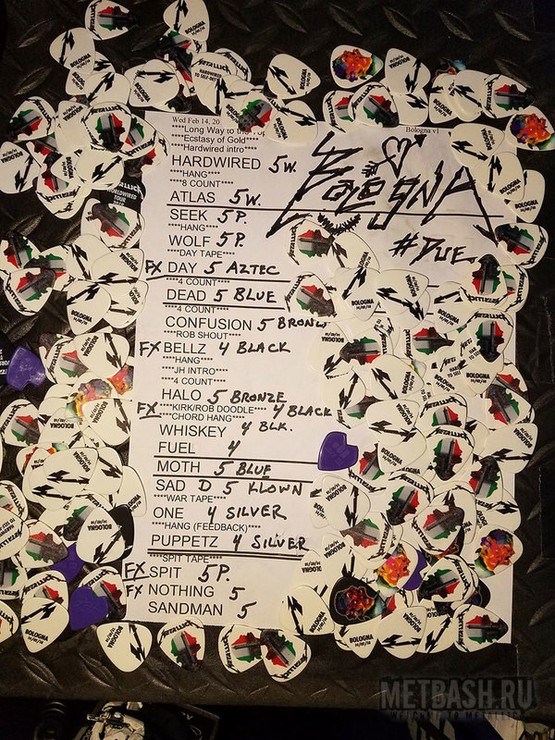 Wed Feb 14, 20
Bologna v1
****Long Way to the
****Ecstasy of Gold
****Hardwired intro****
HARDWIRED 5W.
****HANG****
****8 COUNT****
ATLAS 5W.
SEEK 5P.
****HANG****
WOLF 5P.
****DAY TAPE****
FX DAY 5 AZTEC
****4 COUNT****
DEAD 5 BLUE
****4 COUNT****
CONFUSION 5 BRONZE
****ROB SHOUT****
FX BELLZ 4 BLACK
****HANG****
****JH INTRO****
****4 COUNT****
HALO 5 BRONZE
FX ****KIRK/ROB DOODLE**** 4 BLACK
****CHORD HANG****
WHISKEY 4 BLK.
FUEL 4
MOTH 5 BLUE
SAD D 5 KLOWN
****WAR TAPE****
ONE 4 SILVER
****HANG (FEEDBACK)****
PUPPETZ 4 SILVER
****SPIT TAPE****
FX SPIT 5P.
FX NOTHING 5
SANDMAN 5
BOLOGNA
#DUE
METALLICA
BOLOGNA
METBASH.RU